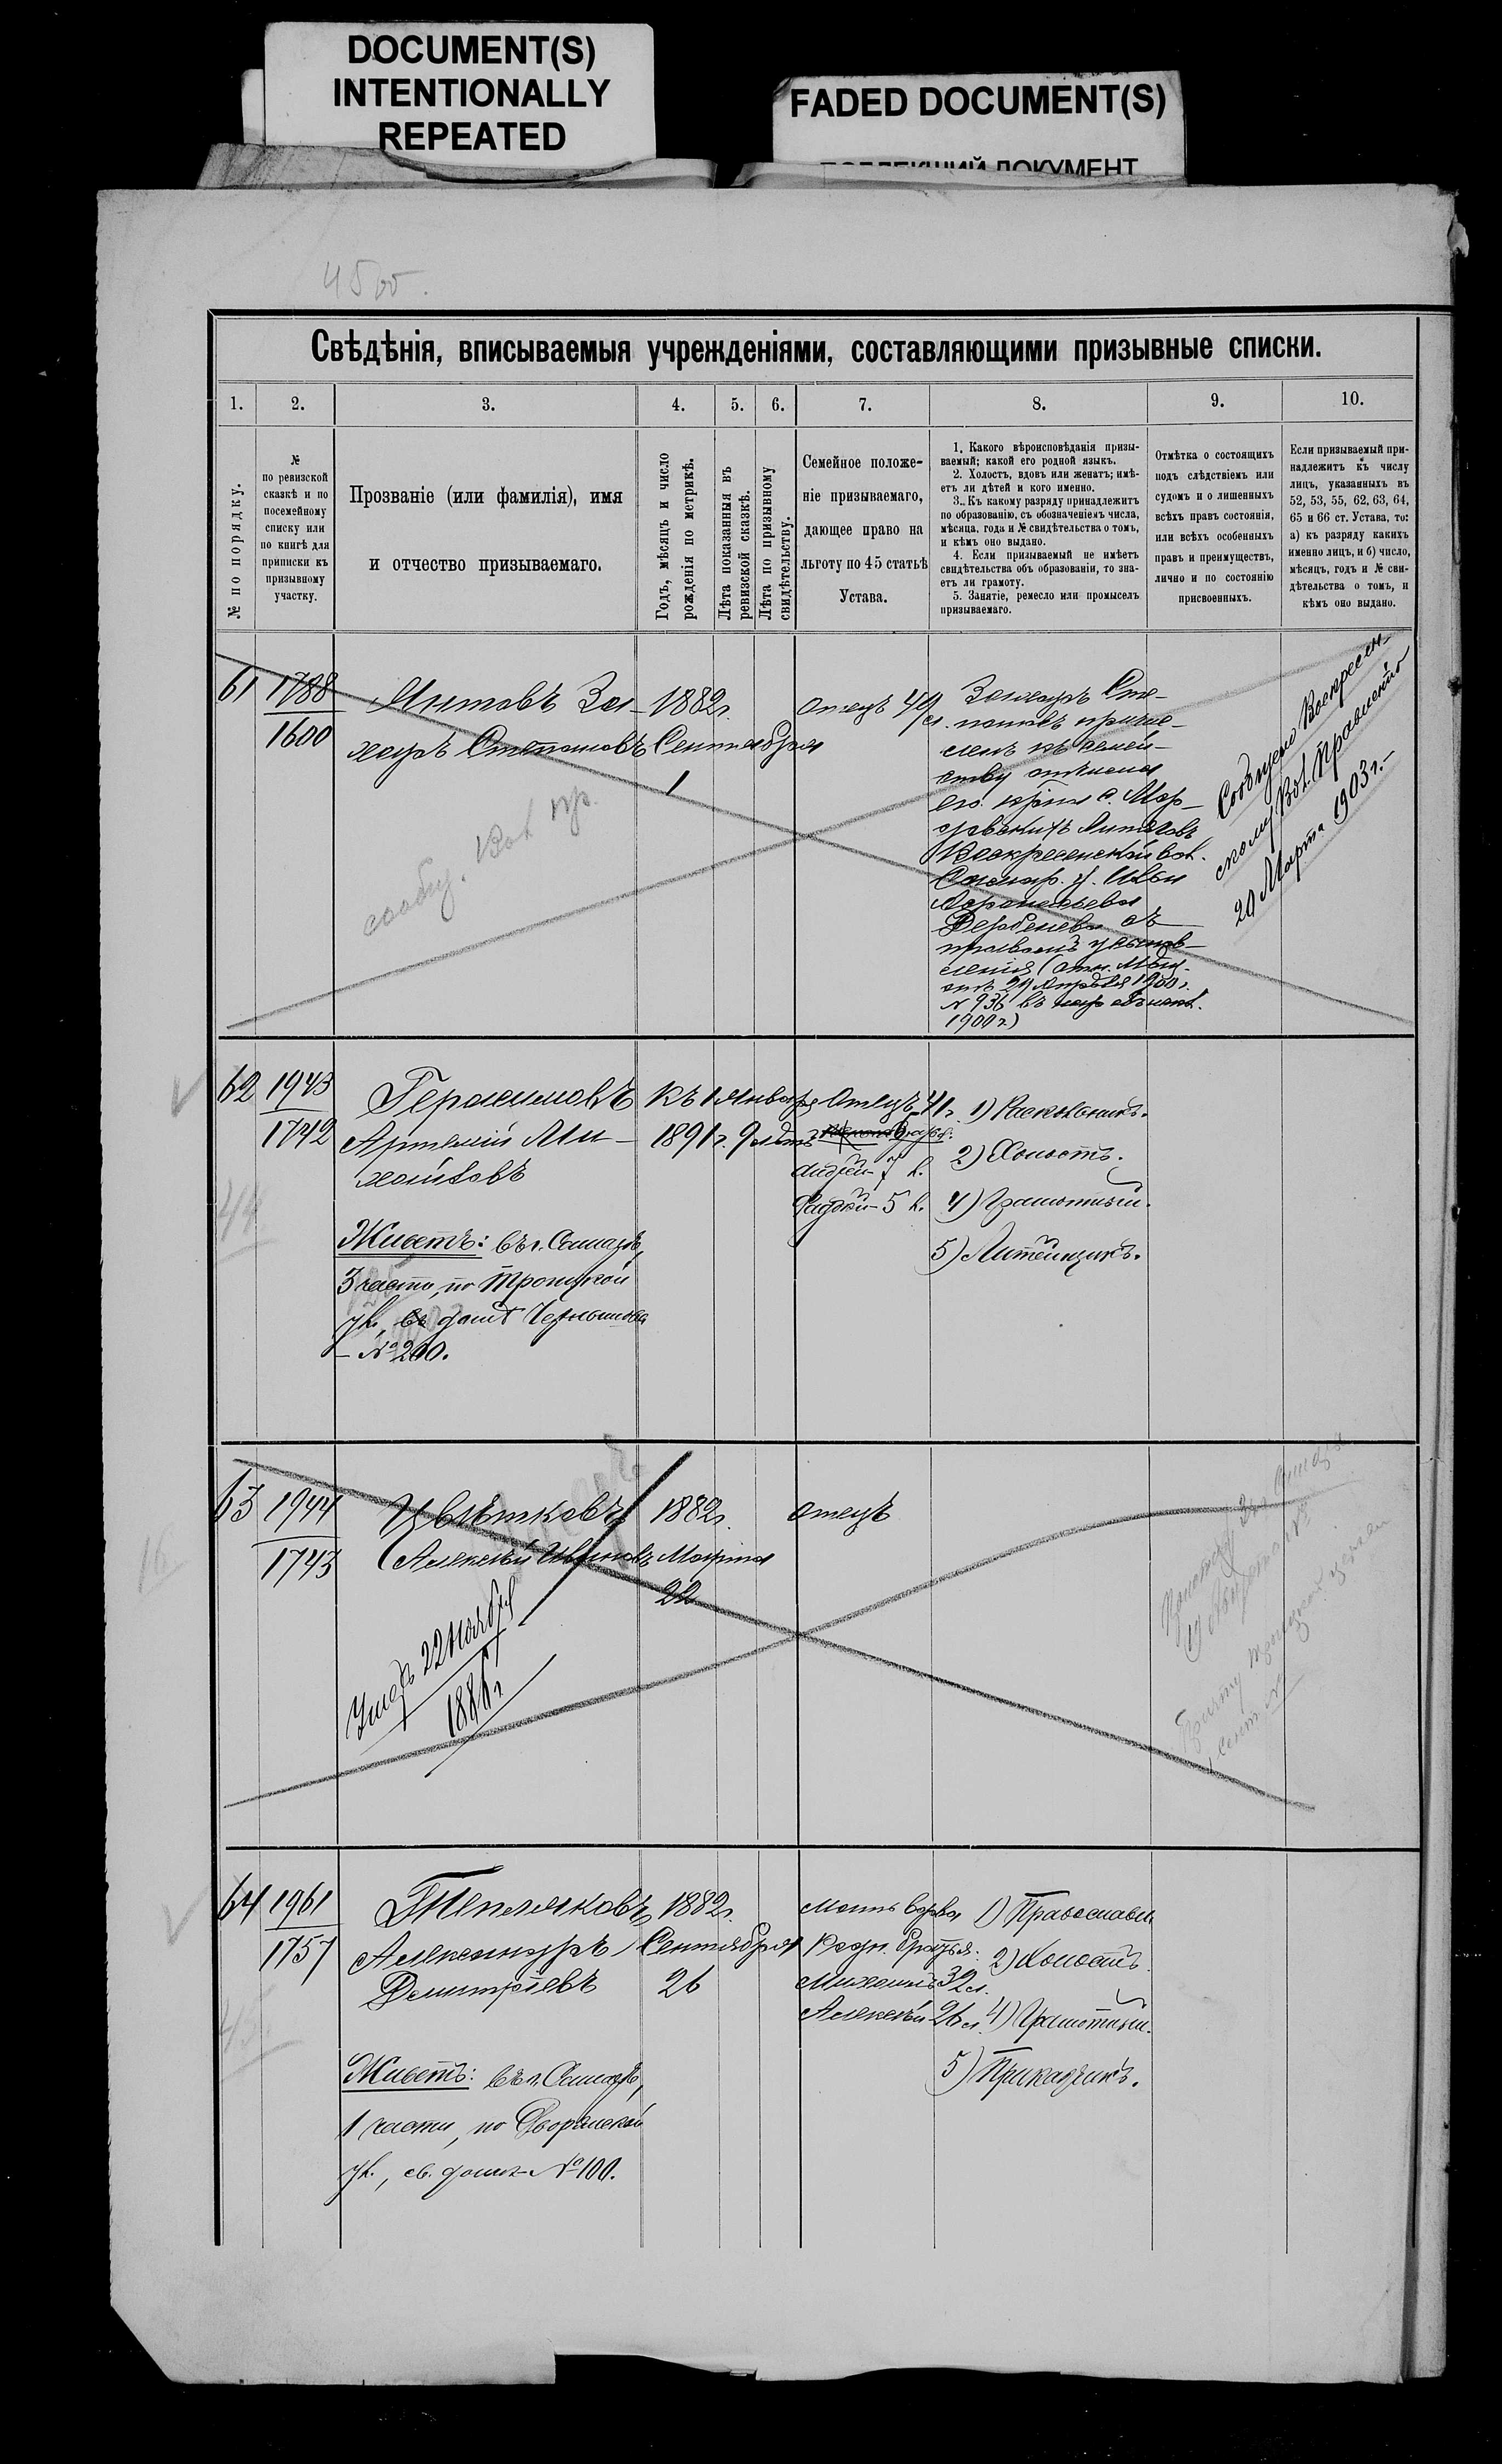 DOCUMENT(S)
INTENTIONALLY
REPEATED
FADED DOCUMENT(S)
ДОКУМЕНТ
45 об.
Свѣдѣнія, вписываемыя учрежденіями, составляющими призывные списки.
1.
2.
3.
4.
5.
6.
7.
8.
9.
10.
№ по порядку.
№
по ревизской
сказкѣ и по
посемейному
списку или
по книгѣ для
приписки къ
призывному
участку.
Прозваніе (или фамилія), имя
и отчество призываемаго.
Годъ, мѣсяцъ и число
рожденія по метрикѣ.
Лѣта показанныя въ
ревизской сказкѣ.
Лѣта по призывному
свидѣтельству.
Семейное положе-
ніе призываемаго,
дающее право на
льготу по 45 статьѣ
Устава.
1. Какого вѣроисповѣданія призы-
ваемый; какой его родной языкъ.
2. Холостъ, вдовъ или женатъ; имѣ-
етъ ли дѣтей и кого именно.
3. Къ какому разряду принадлежитъ
по образованію, съ обозначеніемъ числа,
мѣсяца, года и № свидѣтельства о томъ,
и кѣмъ оно выдано.
4. Если призываемый не имѣетъ
свидѣтельства объ образованіи, то зна-
етъ ли грамоту.
5. Занятіе, ремесло или промыселъ
призываемаго.
Отмѣтка о состоящихъ
подъ слѣдствіемъ или
судомъ и о лишенныхъ
всѣхъ правъ состоянія,
или всѣхъ особенныхъ
правъ и преимуществъ,
лично и по состоянію
присвоенныхъ.
Если призываемый при-
надлежитъ къ числу
лицъ, указанныхъ въ
52, 53, 55, 62, 63, 64,
65 и 66 ст. Устава, то:
а) къ разряду какихъ
именно лицъ, и б) число,
мѣсяцъ, годъ и № сви-
дѣтельства о томъ, и
кѣмъ оно выдано.
61
1788
1600
Антовъ За-
харъ Степановъ
1882г.
Сентября
1
отецъ 49 л.
Захаръ Сте-
пановъ причис-
ленъ къ семей-
ству отчима
его кр-на с.
Воскресенской вол.
Самар. у. Ивана
Афанасьева
съ
правомъ усынов-
ленія
29 Апрѣля 1900г.
№ 936 въ
1900 г.)
Сообщено Воскресен-
скому Вол. Правленію
29 Марта 1903г.
сообщ. Вол. пр.
62
1943
1742
Герасимовъ
Артемій Ми-
хайловъ
Къ 1 Января
1891г. 9 лѣтъ
Отецъ 41 г.
Андрей 7 л.
Фадѣй 5 л.
1) Раскольникъ.
2) Холостъ.
4) Грамотный.
5) Литейщикъ.
44
Живетъ: въ г. Самарѣ,
3 части, по Троицкой
ул., въ домѣ Чернышова
№ 200.
63
1944
1743
Цвѣтковъ
Алексѣй Ивановъ
1882г.
Марта
22
отецъ
Умеръ 22 Ноября
1886г.
16
64
1961
1757
Тепляковъ
Александръ
Дмитріевъ
1882г.
Сентября
26
Мать вдова
Родн. братья:
Михаилъ 32 л.
Алексѣй 26 л.
1) Православн.
2) Холостъ
4) Грамотный.
5) Прикащикъ.
45
Живетъ: въ г. Самарѣ,
1 части, по Дворянской
ул., св. домъ № 100.